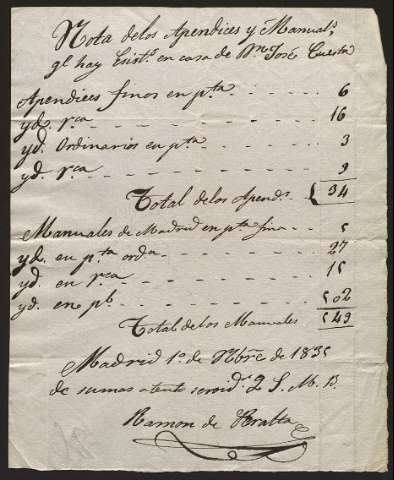 Nota de los Apendices y Manual.s
qe hay Exist.s en casa de Dn José Cuesta
Apendices finos en pta 6
yd. rca 16
yd. Ordinarios en pta 3
yd. rca 9
Total de los Apend.s 34
Manuales de Madrid en pta fina 5
yd. en pta orda 27
yd. en rca 15
yd. en pl 502
Total de los Manuales 549
Madrid 1º de de 1835
de sumas atento servid.r Q. S. M. B.
Ramon de Peralta